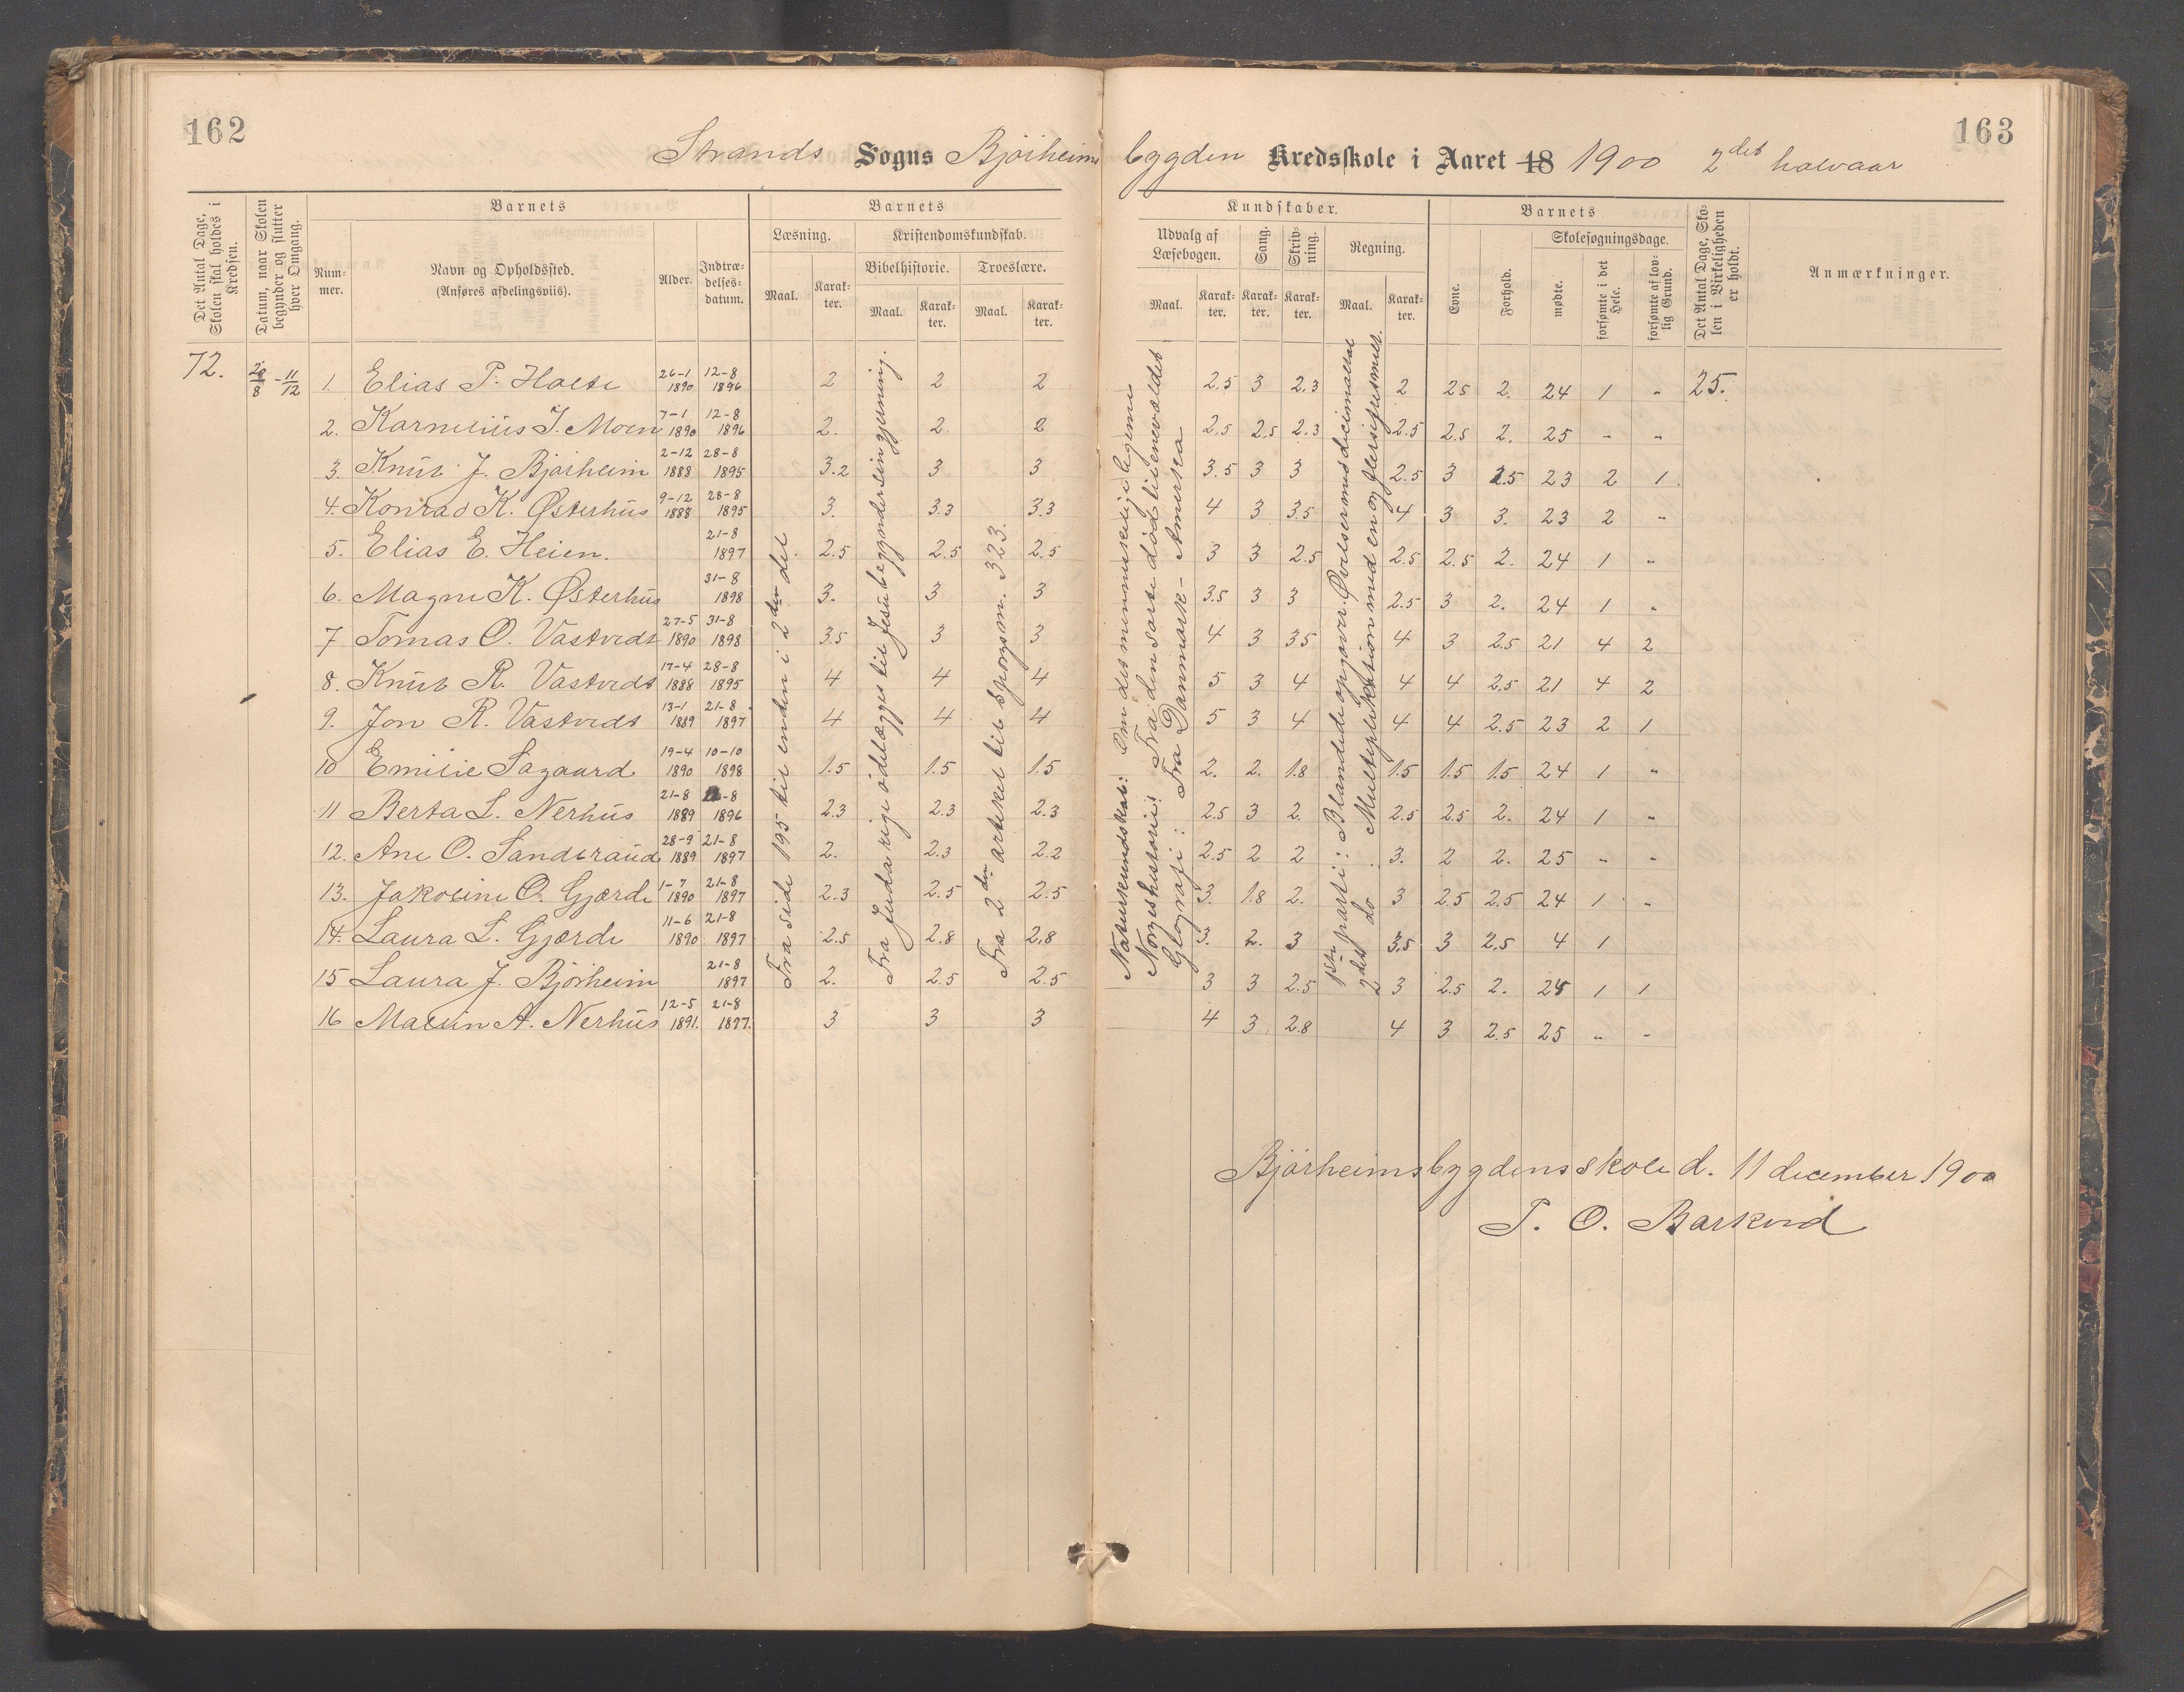 162
163
Strands Sogns Bjørheims bygden Kredsskole i Aaret 18 1900 2det halvaar
Det Antal Dage, Skolen skal holdes i Kredsen.
Datum, naar Skolen begynder og slutter hver Omgang.
Barnets
Barnets
Kundskaber.
Barnets
Det Antal Dage, Skolen i Virkeligheden er holdt.
Anmærkninger.
Nummer.
Navn og Opholdssted. (Anføres afdelingsviis).
Alder.
Indtrædelses-datum.
Læsning.
Kristendomskundskab.
Bibelhistorie.
Troeslære.
Udvalg af Læsebogen.
Sang.
Skrivning.
Regning.
Evne.
Forhold.
Skolesøgningsdage.
Maal. Karakter. Maal. Karakter. Maal. Karakter. Maal. Karakter. Karakter. Karakter. Maal. Karakter.
mødte.
forsømte i det Hele.
forsømte af lovlig Grund.
72. 28/8 - 11/12 1. Elias P. Holte 26-1 1890 12-8 1896 2 2 2 2.5 3 2.3 2 25 2. 24 1 " 25.
2. Karnelius J. Moen 7-1 1890 12-8 1896 2. 2. 2 2.5 2.5 2.3 2.5 2.5 2. 25 " "
3. Knut J. Bjørheim 2-12 1888 28-8 1895 3.2 3 3 3.5 3 3 2.5 3 2.5 23 2 1.
4. Konrad K. Østerhus 9-12 1888 28-8 1895 3. 3.3 3.3 4 3 3.5 4 3 3. 23 2 "
5. Elias E. Heien. 21-8 1897 2.5 2.5 2.5 3 3 2.5 2.5 2.5 2. 24 1 "
6. Magne K. Østerhus 31-8 1898 3. 3 3 3.5 3 3 2.5 3 2. 24 1 "
7 Tomas O. Vastvedt 27-5 1890 31-8 1898 3.5 3 3 4 3 35 4 3 2.5 21 4 2
8. Knut R. Vastvedt 17-4 1888 28-8 1895 4 4 4 5 3 4 4 4 2.5 21 4 2
9. Jon R. Vastvedt 13-1 1889 21-8 1897 4 4 4 5 3 4 4 4 2.5 23 2 1
10 Emilie Sagaard 19-4 1890 10-10 1898 1.5 1.5 1.5 2. 2. 1.8 1.5 1.5 1.5 24 1 "
11 Berta L. Nerhus 21-8 1889 -8 1896 2.3 2.3 2.3 2.5 3 2. 2.5 2.5 2. 24 1 "
12. Ane O. Sandsraud 28-9 1889 21-8 1897 2. 2.3 2.2 2.5 2 2 3. 2 2. 25 " "
13. Jakobine O. Gjærde 1-7 1890 21-8 1897 2.3 2.5 2.5 3. 1.8 2. 3 2.5 2.5 24 1 "
14. Laura L. Gjærde 11-6 1890 21-8 1897 2.5 2.8 2.8 3. 2. 3 3.5 3 2.5 4 1
15 Laura J. Bjørheim 21-8 1897 2. 2.5 2.5 3 3 2.5 3 2.5 2. 24 1 1
16 Malin A. Nerhus 12-5 1891. 21-8 1897. 3 3 3 4 3 2.8 4 3 2.5 25 " "
Fra side 195 til enden i 2den del
Fra Juda rige ødelægges til Jesu begyndelsin gjerning.
Fra 2den artikel til spørgsm. 323.
Naturkundskab: Om det menneskelige legeme
Norgeshistorie: Fra den sorte død til enevældet
Geografi: Fra Danmark - Amerika
1ste parti: Blandede opgaver. Øvelser med decimaltal
2det do Multiplikation med en og flersifresmult.
Bjørheimsbygdens skole d. 11 december 1900
P. O. Barkved